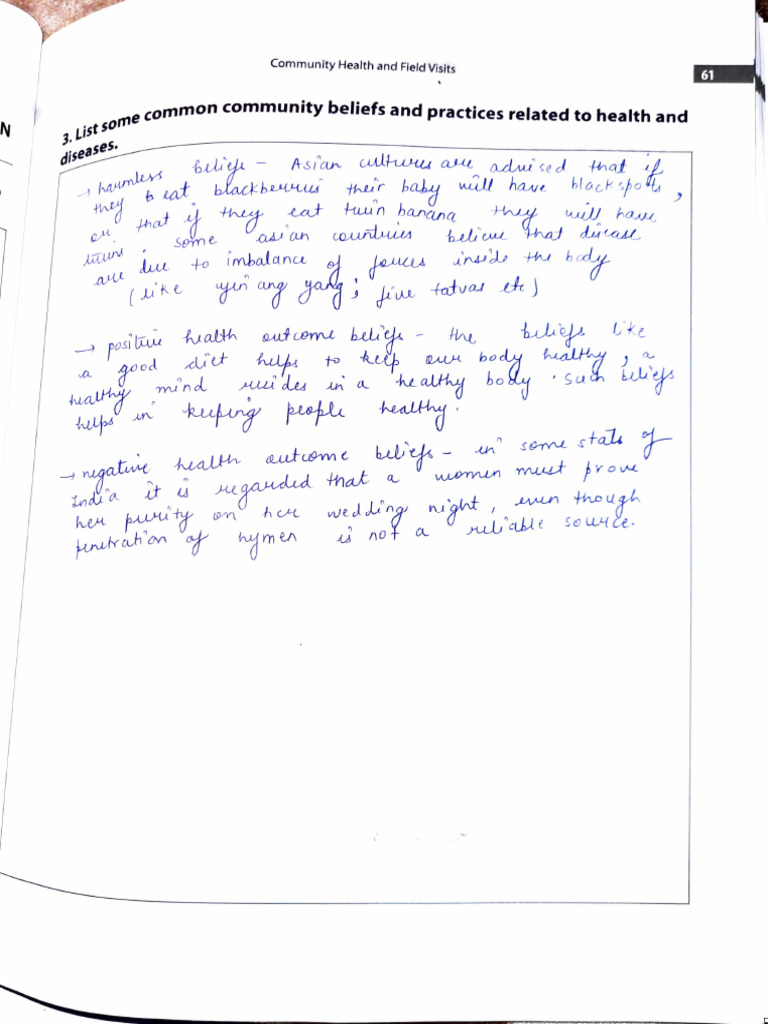 Community Health and Field Visits
61
N
3. List some common community beliefs and practices related to health and
diseases.
→ harmless beliefs – Asian cultures are advised that if
they eat blackberries their baby will have blackspots,
or that if they eat twin banana they will have
twins. some asian countries believe that disease
are due to imbalance of forces inside the body
(like yin ang yang; five tatvas etc)
→ positive health outcome beliefs – the beliefs like
a good diet helps to keep our body healthy, a
healthy mind resides in a healthy body. such beliefs
helps in keeping people healthy.
→ negative health outcome beliefs – in some stats of
India it is regarded that a women must prove
her purity on her wedding night, even though
penetration of hymen is not a reliable source.